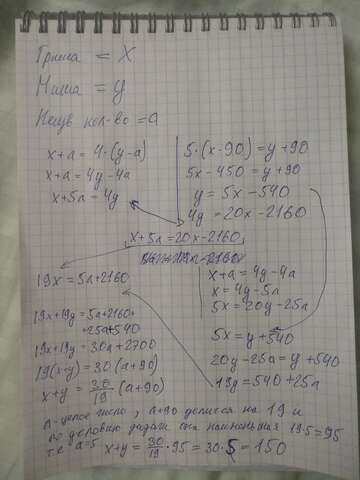 Гриша = x
Миша = y
Неизв кол-во = a
x+a = 4·(y-a)
x+a = 4y-4a
x+5a = 4y
5·(x-90) = y+90
5x-450 = y+90
y = 5x-540
4y = 20x-2160
x+5a = 20x-2160
19x = 5a+2160
19x+19y = 5a+2160+
25a+540
19x+19y = 30a+2700
19(x+y) = 30(a+90)
x+y = 30/19 · (a+90)
x+a = 4y-4a
x = 4y-5a
5x = 20y-25a
5x = y+540
20y-25a = y+540
19y = 540+25a
a-целое число, a+90 делится на 19 и
по условию задачи наименьшая 19·5=95
т.е a=5 x+y = 30/19 · 95 = 30·5 = 150